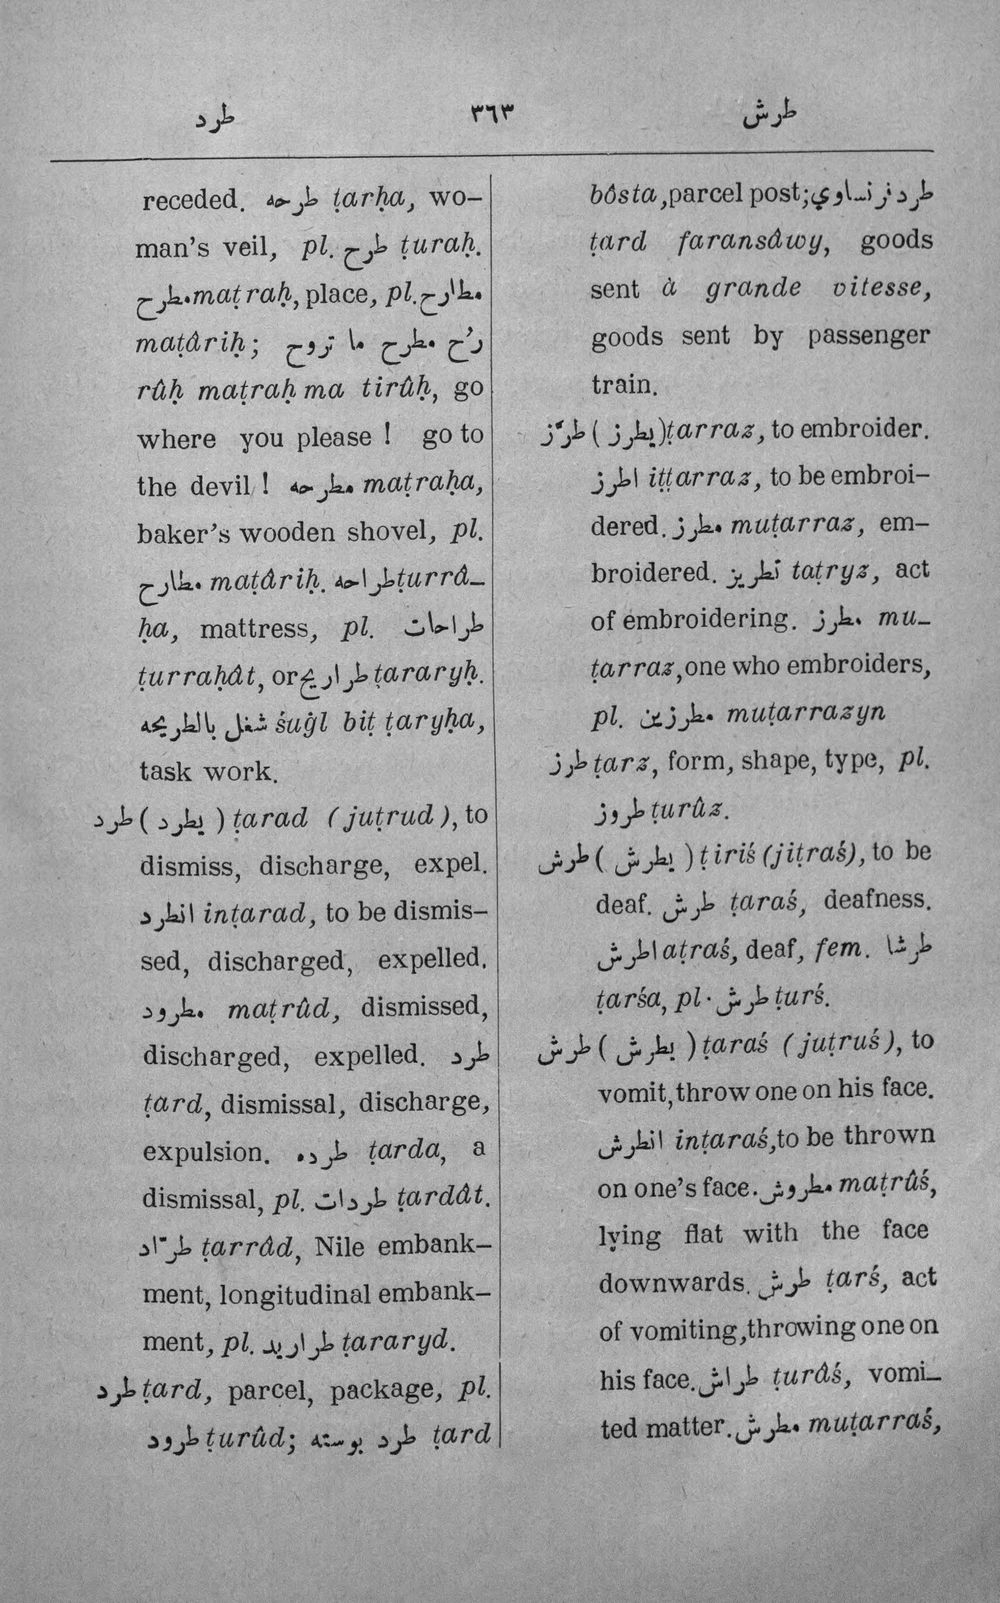 طرد ٣٦٣ طرش
receded. طرحه ṭarḥa, wo-
man's veil, pl. طرح ṭuraḥ.
مطرح maṭraḥ, place, pl. مطارح
maṭâriḥ; رُح مطرح ما تروح
rûḥ maṭraḥ ma tirûḥ, go
where you please ! go to
the devil ! مطرحه maṭraḥa,
baker's wooden shovel, pl.
مطارح maṭâriḥ. طراحه ṭurrâ-
ḥa, mattress, pl. طراحات
ṭurraḥât, or طراريح ṭararyḥ.
شغل بالطريحه śuġl biṭ ṭaryḥa,
task work.
طرد ( يطرد ) ṭarad (juṭrud), to
dismiss, discharge, expel.
انطرد inṭarad, to be dismis-
sed, discharged, expelled.
مطرود maṭrûd, dismissed,
discharged, expelled. طرد
ṭard, dismissal, discharge,
expulsion. طرده ṭarda, a
dismissal, pl. طردات ṭardât.
طرّاد ṭarrâd, Nile embank-
ment, longitudinal embank-
ment, pl. طراريد ṭararyd.
طرد ṭard, parcel, package, pl.
طرود ṭurûd; طرد بوسته ṭard
bôsta, parcel post; طرد فرنساوي
ṭard faransâwy, goods
sent à grande vitesse,
goods sent by passenger
train.
طرّز ( يطرز ) ṭarraz, to embroider.
اطرز iṭṭarraz, to be embroi-
dered. مطرز muṭarraz, em-
broidered. تطريز taṭryz, act
of embroidering. مطرز mu-
ṭarraz, one who embroiders,
pl. مطرزين muṭarrazyn
طرز ṭarz, form, shape, type, pl.
طروز ṭurûz.
طرش ( يطرش ) ṭiriś (jiṭraś), to be
deaf. طرش ṭaraś, deafness.
اطرش aṭraś, deaf, fem. طرشا
ṭarśa, pl. طرش ṭurś.
طرش ( يطرش ) ṭaraś (juṭruś), to
vomit, throw one on his face.
انطرش inṭaraś, to be thrown
on one's face. مطروش maṭrûś,
lying flat with the face
downwards. طرش ṭarś, act
of vomiting, throwing one on
his face. طراش ṭurâś, vomi-
ted matter. مطرش muṭarraś,